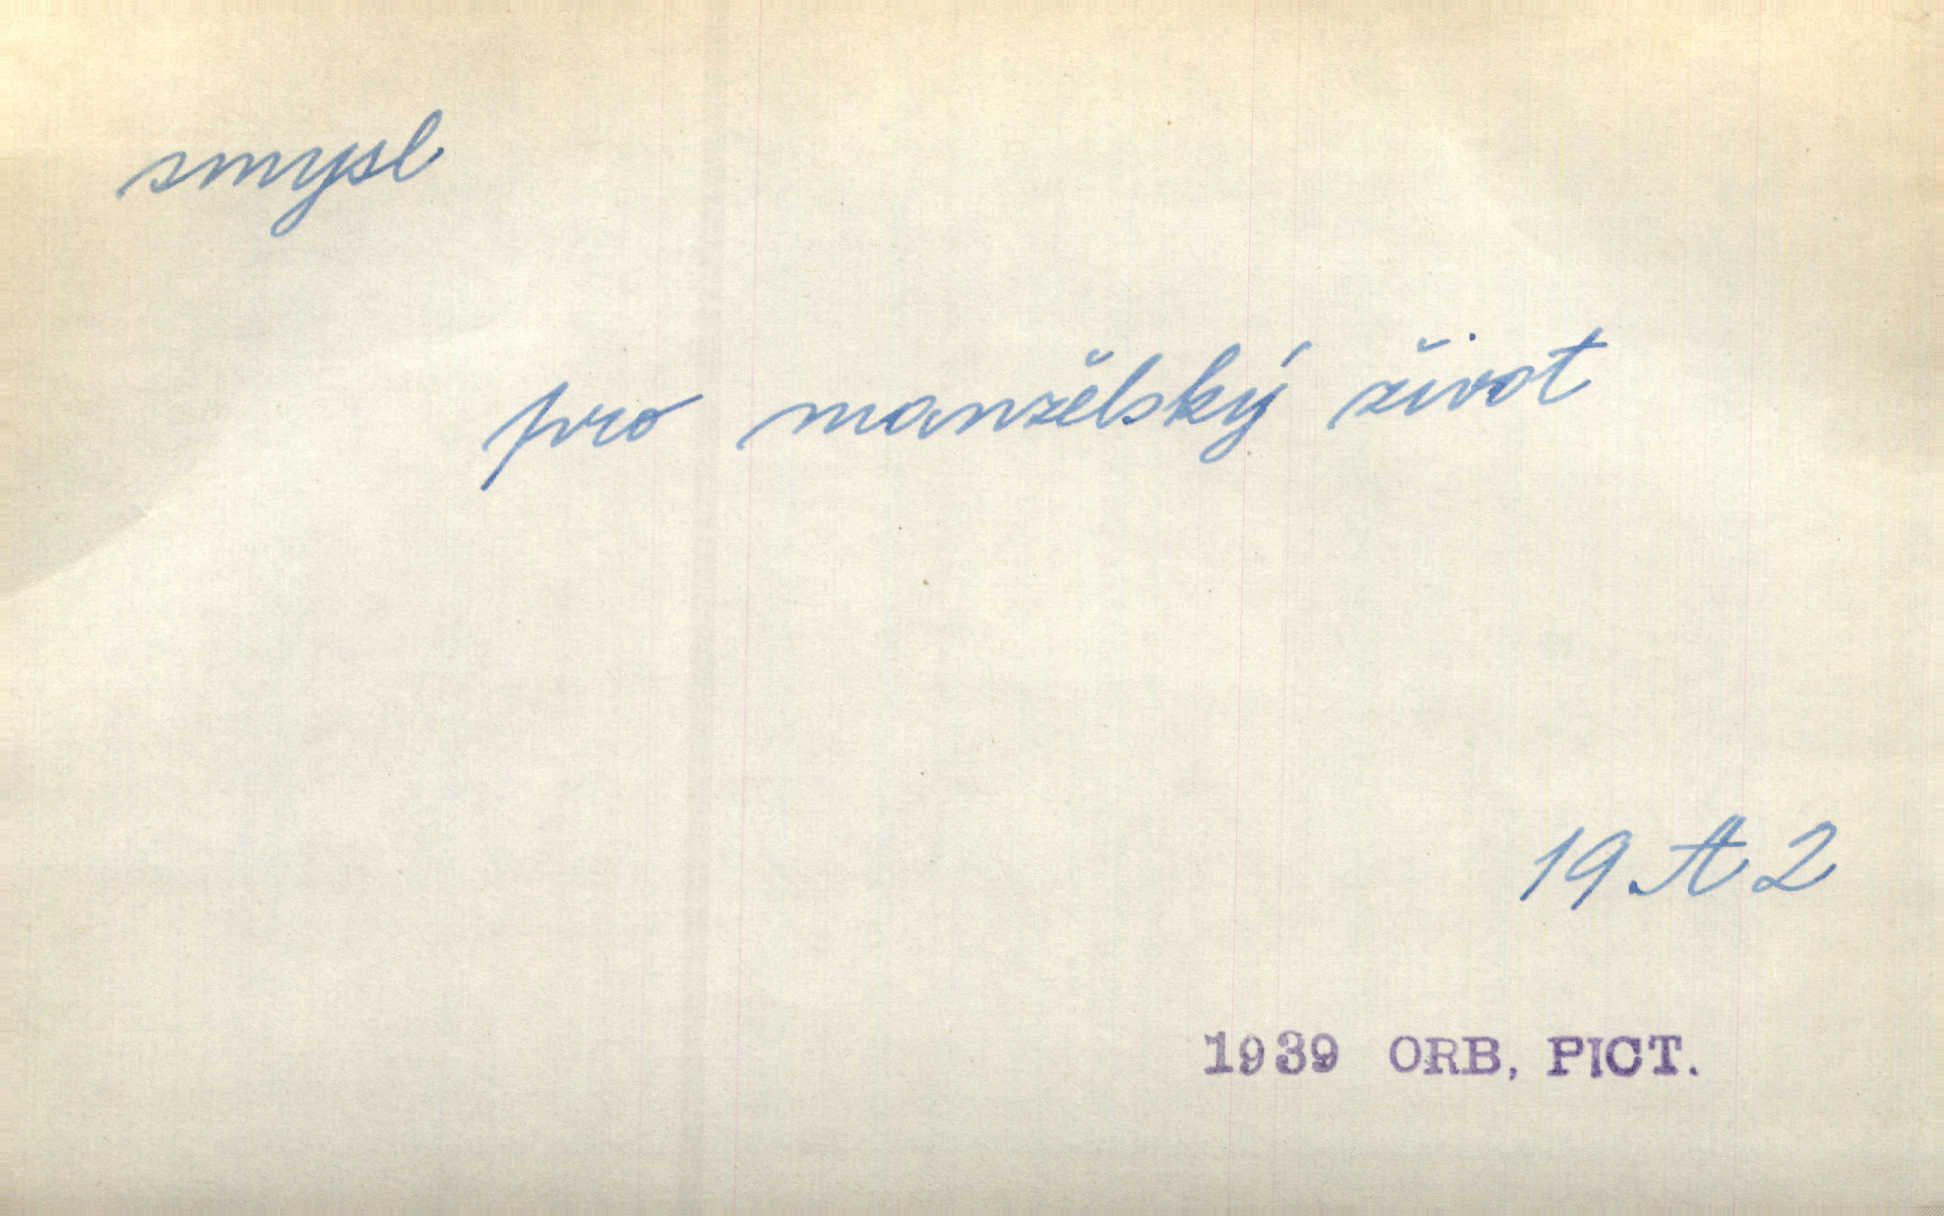 smysl
pro manželský život
19 A 2
1939 ORB, PICT.